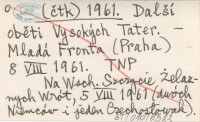 (čtk) 1961. Další
oběti Vysokých Tater. -
Mladá Fronta (Praha)
8 VIII 1961. TNP
Na Wsch. Szczycie Żelaz-
nych Wrót, 5 VIII 1961 (dwóch
Niemców i jeden Czechosłowak).